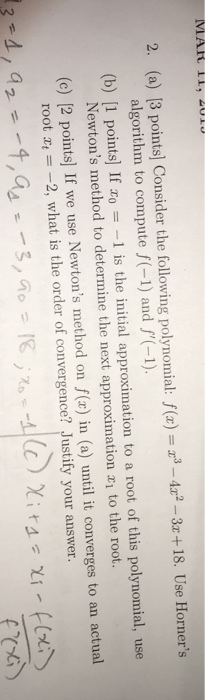 MAR 11, 2015
2. (a) [3 points] Consider the following polynomial: f(x) = x³ − 4x² − 3x + 18. Use Horner's
algorithm to compute f(−1) and f′(−1).
(b) [1 points] If x₀ = −1 is the initial approximation to a root of this polynomial, use
Newton's method to determine the next approximation x₁ to the root.
(c) [2 points] If we use Newton's method on f(x) in (a) until it converges to an actual
root xₜ = −2, what is the order of convergence? Justify your answer.
3 = 1, a2 = -4, a1 = -3, a0 = 18; x0 = -1 (c) xi+1 = xi - f(xi)
f'(xi)